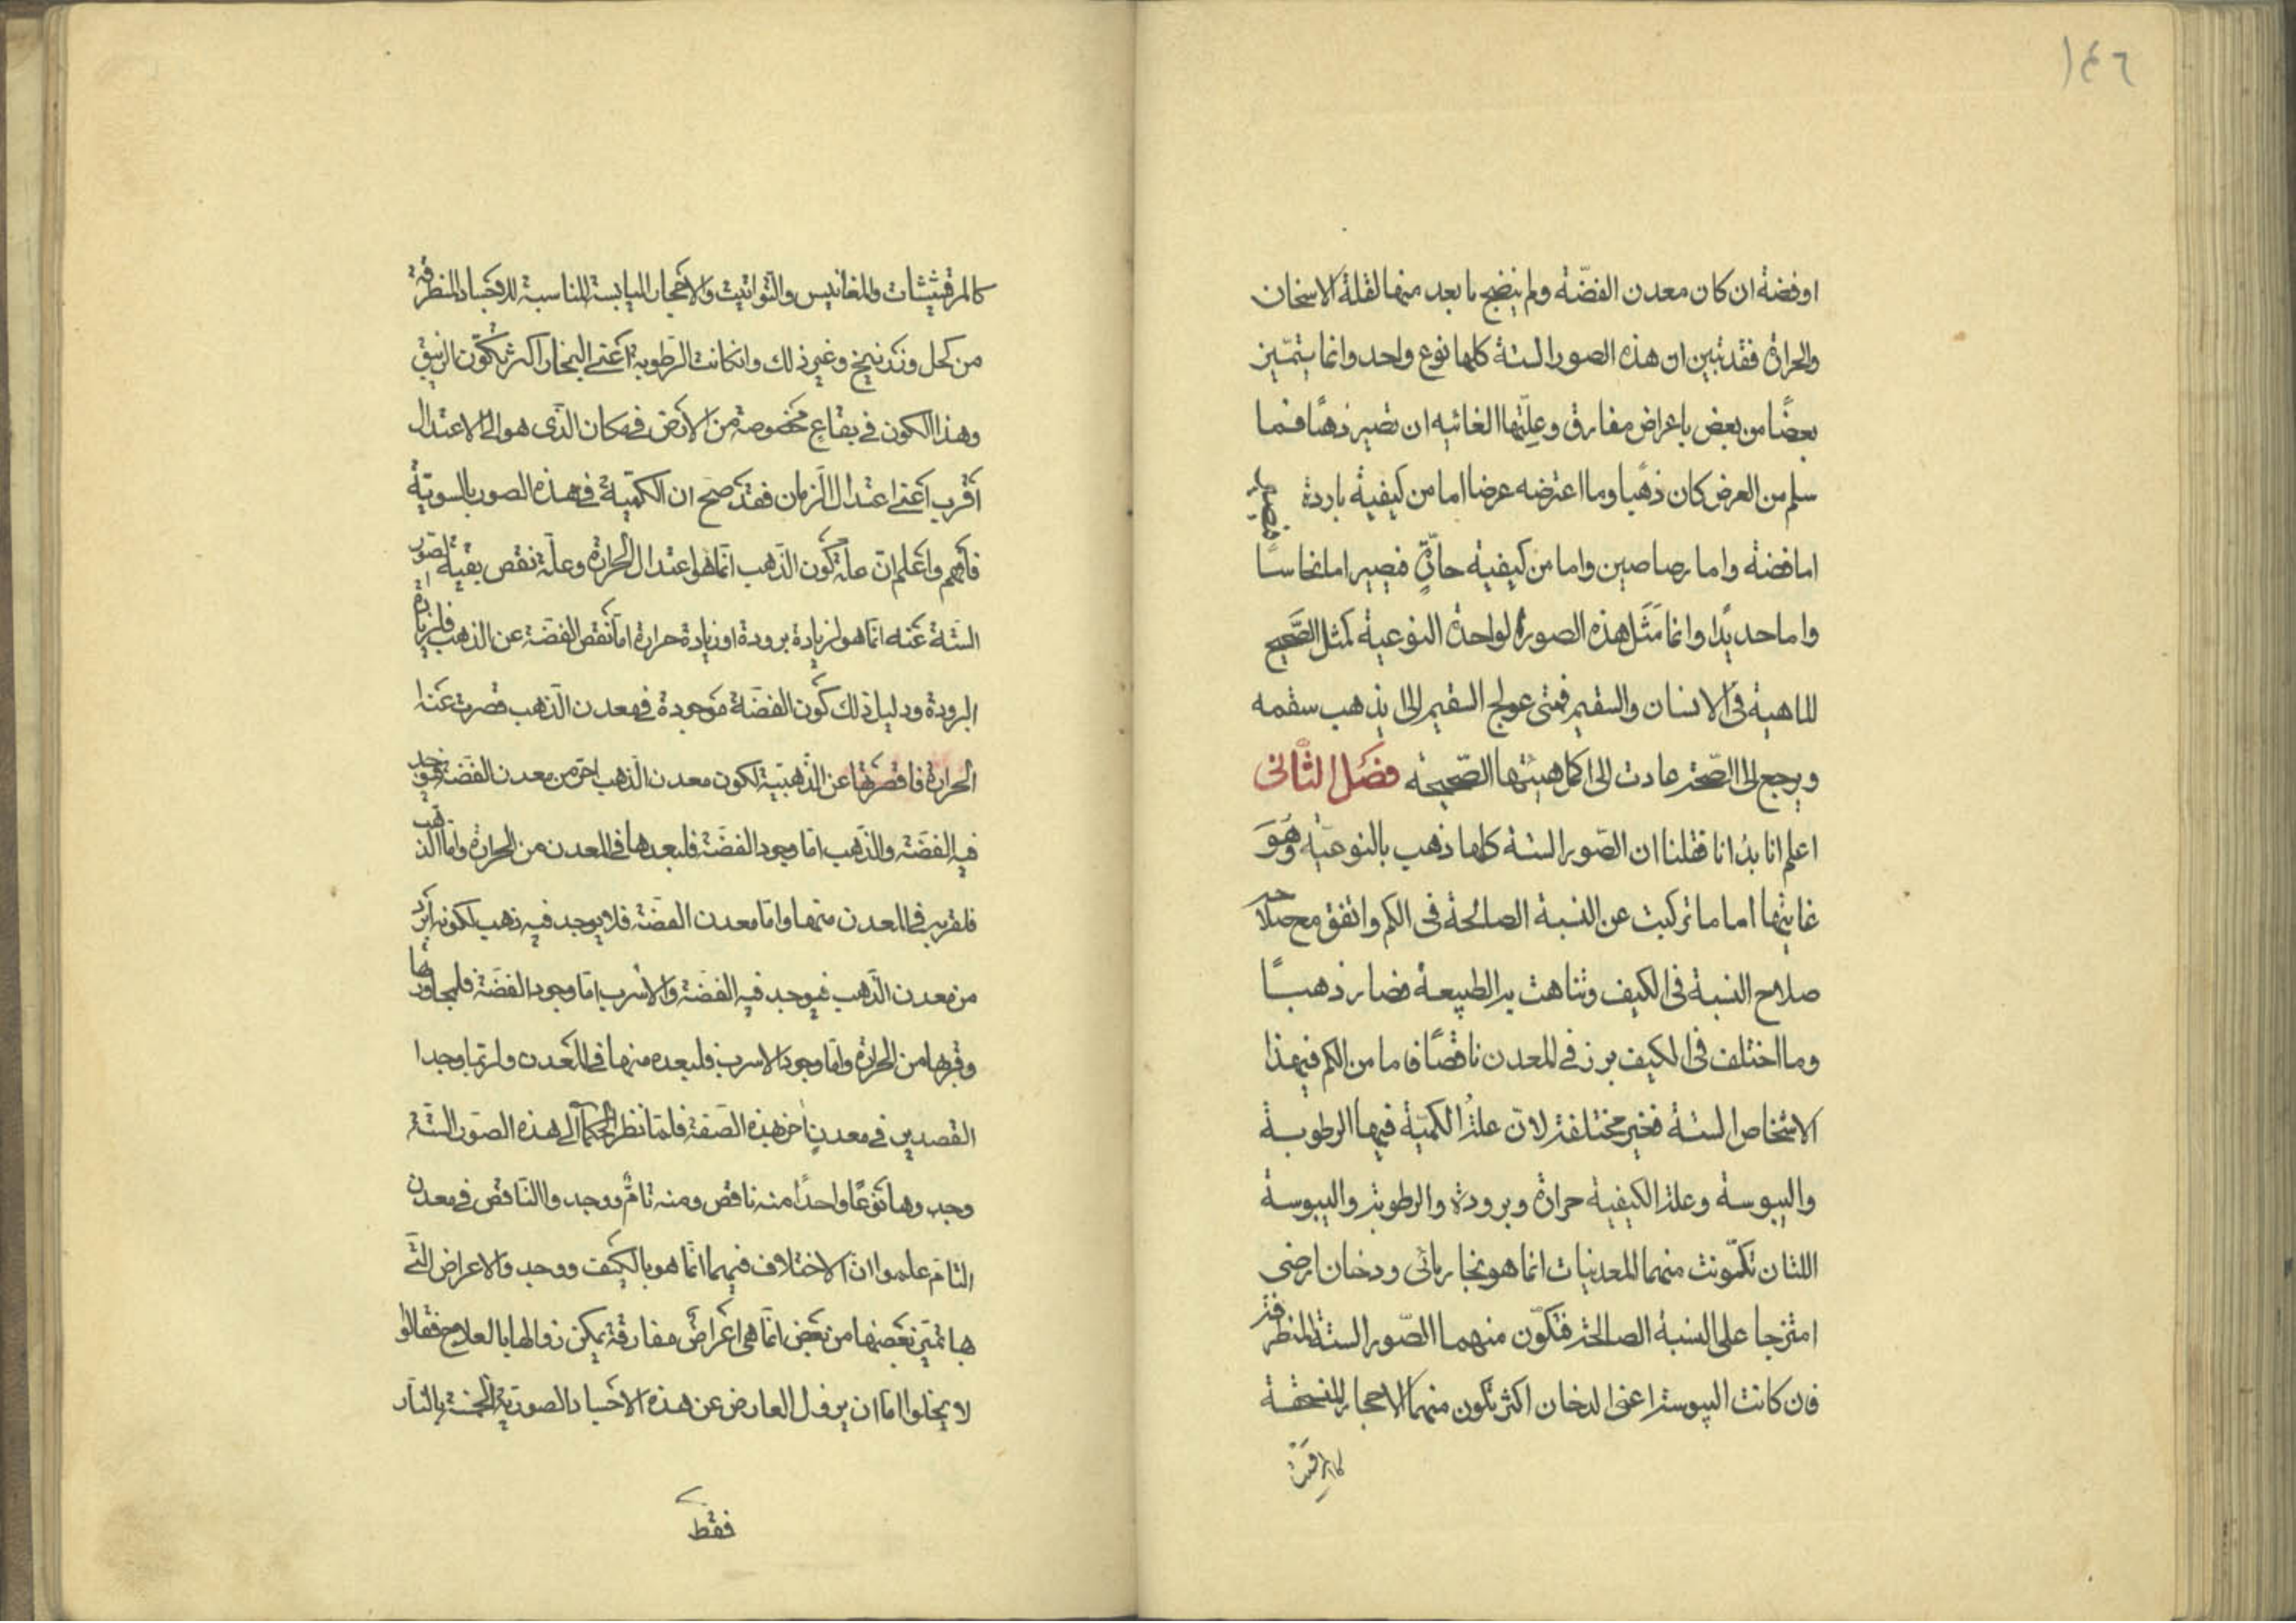 ١٤٦
او فضة ان كان معدن الفضّة ولم ينضج ما بعد منها لقلة الاسخان
والحرارة فقد تبين ان هذه الصور الستة كلها نوع واحد وانما يتمّيز
بعضًا من بعض باعراض مفارق وعلّتها الغائيه ان تصير ذهبًا فما
سلم من العرض كان ذهبًا وما اعترضه عرضا اما من كيفية باردة فيصير
اما فضة واما رصاصين واما من كيفية حارّةٍ فيصير اما نحاسًا
واما حديدًا وانما مَثَل هذه الصورة الواحدة النوعية كمثل الصَّحيح
الماهية فى الانسان والسقيم فمتى عولج السقيم الى يذهب سقمه
ويرجع الى الصّحة عادت الى اكمل هيئتها الصّحيحة فصل الثَّانى
اعلم انا بدانا فقلنا ان الصّور الستة كلها ذهب بالنوعيّة وهُوَ
غايتها اما ما تركبت عن النسبة الصالحة فى الكم واتفق مع صلاحه
صلاح النسبة فى الكيف وتناهت به الطبيعة فصار ذهبًا
وما اختلف فى الكيف برز فى المعدن ناقصًا فاما من الكم فى هذا
الاشخاص الستة فغير مختلفة لانّ علةُ الكميّة فيها الرطوبة
واليبوسة وعلة الكيفية حرارة وبرودة والرطوبة واليبوسة
اللتان تكمّونت منهما المعدنيات انما هو بخار مائى ودخان ارضى
امتزجا على النسبة الصالحة فتكوّن منهما الصّور الستة المنطرقة
فان كانت اليبوسة اعنى الدخان اكثر تكون منهما الاحجار المنسحقة
كالمرقش
كالمرقشيثات والمغانيس والتوانيث والاحجار اليابسة المناسبة للاجساد المنطرقة
من كحل وزرنيخ وغير ذلك وانكانت الرطوبة اعنى البخار اكثر تكوّن الزيبق
وهذا الكون فى بقاعٍ مخصوصة من الارض فى مكان الذى هو الى الاعتدال
اقرب اعنى اعتدال الزمان فقد صح ان الكميّة فى هذه الصور بالسويّة
فافهم واعلم انّ علّة كون الذهب انّما هو اعتدال الحرارة وعلّة نقص بقية الصّور
الستّة عنه انّما هو لزيادة برودة او زيادة حرارة امّا نقص الفضّة عن الذهب فلزيادة
البرودة ودليل ذلك كون الفضّة موجودة فى معدن الذهب قصرت عنها
الحرارة فاقصرتها عن الذهبيّة لكون معدن الذهب احرّ من معدن الفضّة فيوجد
فيه الفضّة والذهب امّا وجود الفضّة فلبعدها فى المعدن من الحرارة وامّا الذهب
فلقربه فى المعدن منها وامّا معدن الفضّة فلا يوجد فيه ذهب لكونه ابرد
من معدن الذهب فيوجد فيه الفضّة والاسرب امّا وجود الفضّة فلمجاورتها
وقربها من الحرارة وامّا وجود الاسرب فلبعده منها فى المعدن ولربّما وجدا
القصدير فى معدنٍ اخر بهذه الصّفة فلمّا نظر الحكمآ الى هذه الصّور الستّة
وجدوها نوعًا واحدًا منه ناقص ومنه تامٌّ ووجدوا النّاقص فى معدن
التامّ علموا انّ الاختلاف فيهما انّما هو بالكيف ووجدوا الاعراض الّتى
بها تميّز بعضها من بعض انّما هى اعراضٌ مفارقة يمكن زوالها بالعلاج فقالوا
لا يخلوا امّا ان يزول العارض عن هذه الاجساد الصوريّة الخمسة بالنّار
فقط